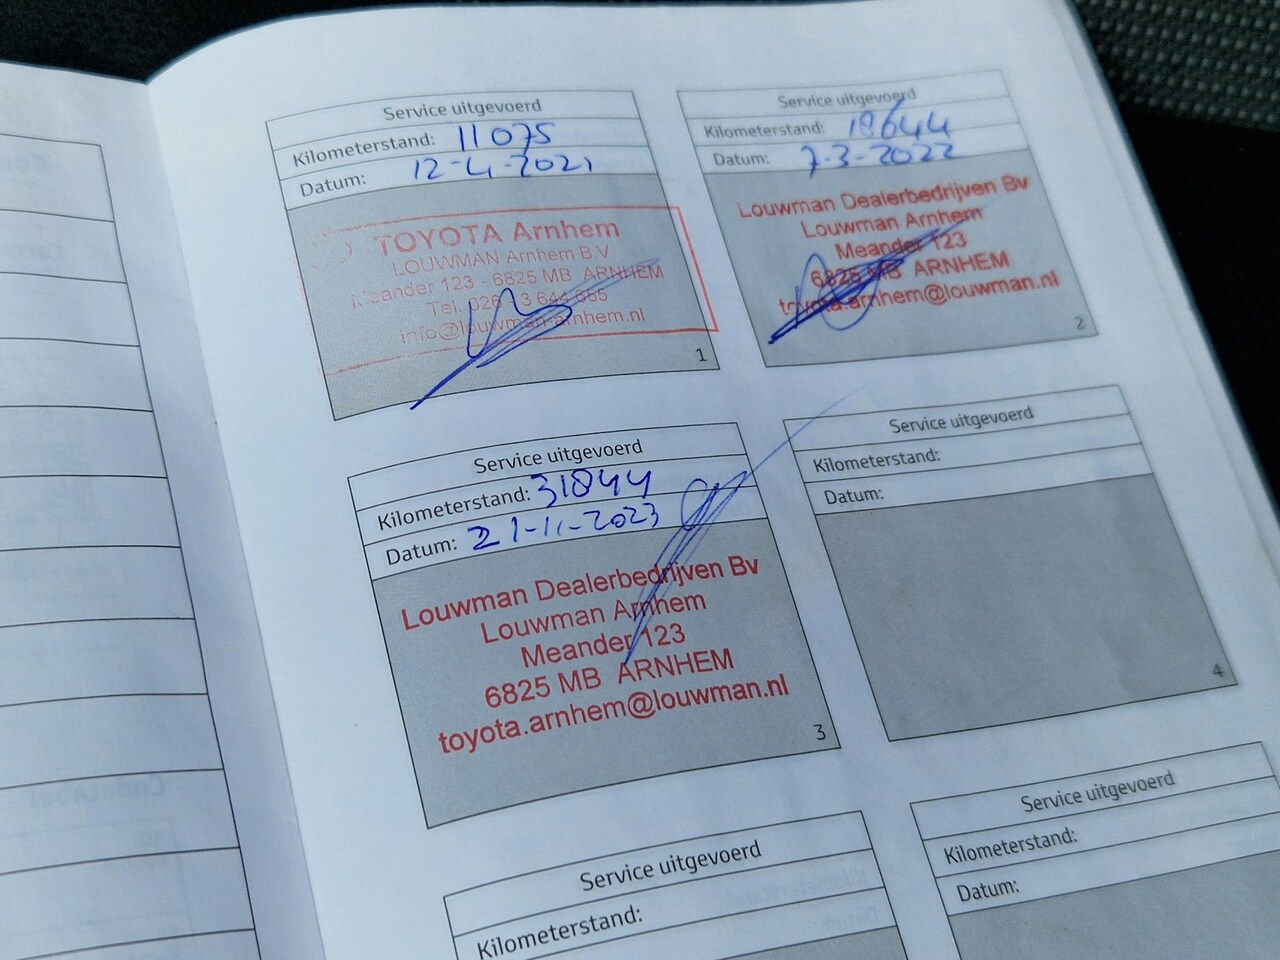 Service uitgevoerd
Kilometerstand: 11075
Datum: 12-4-2021
TOYOTA Arnhem
LOUWMAN Arnhem B.V.
Meander 123 - 6825 MB ARNHEM
Tel. 026 3 644 655
info@louwman-arnhem.nl
1
Service uitgevoerd
Kilometerstand: 18644
Datum: 7-3-2022
Louwman Dealerbedrijven Bv
Louwman Arnhem
Meander 123
6825 MB ARNHEM
toyota.arnhem@louwman.nl
2
Service uitgevoerd
Kilometerstand: 31844
Datum: 21-11-2023
Louwman Dealerbedrijven Bv
Louwman Arnhem
Meander 123
6825 MB ARNHEM
toyota.arnhem@louwman.nl
3
Service uitgevoerd
Kilometerstand:
Datum:
4
Service uitgevoerd
Kilometerstand:
Service uitgevoerd
Kilometerstand:
Datum: